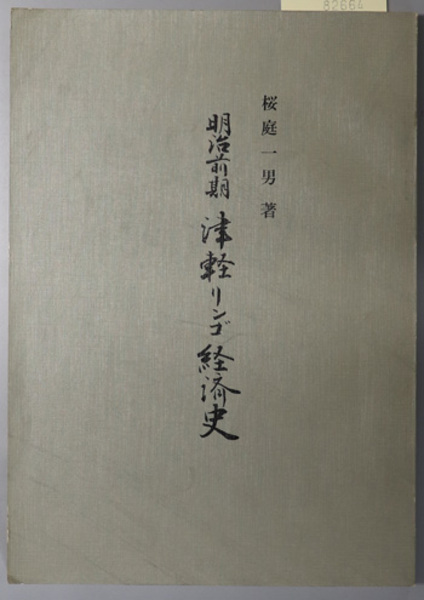 桜庭一男著
明治前期津軽リンゴ経済史